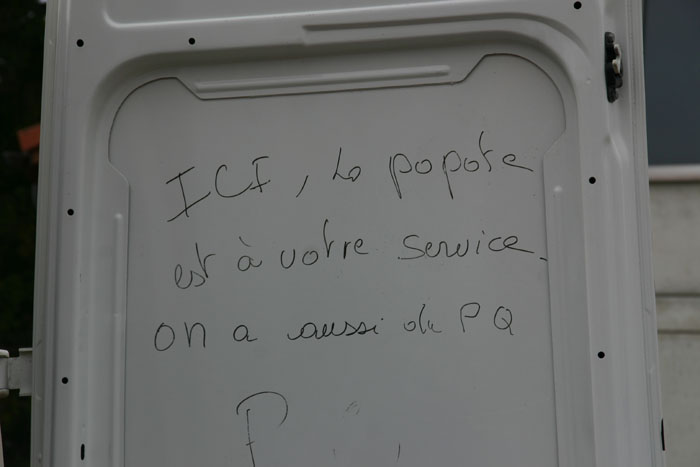 ICI, la popote
est à votre service.
on a aussi du PQ